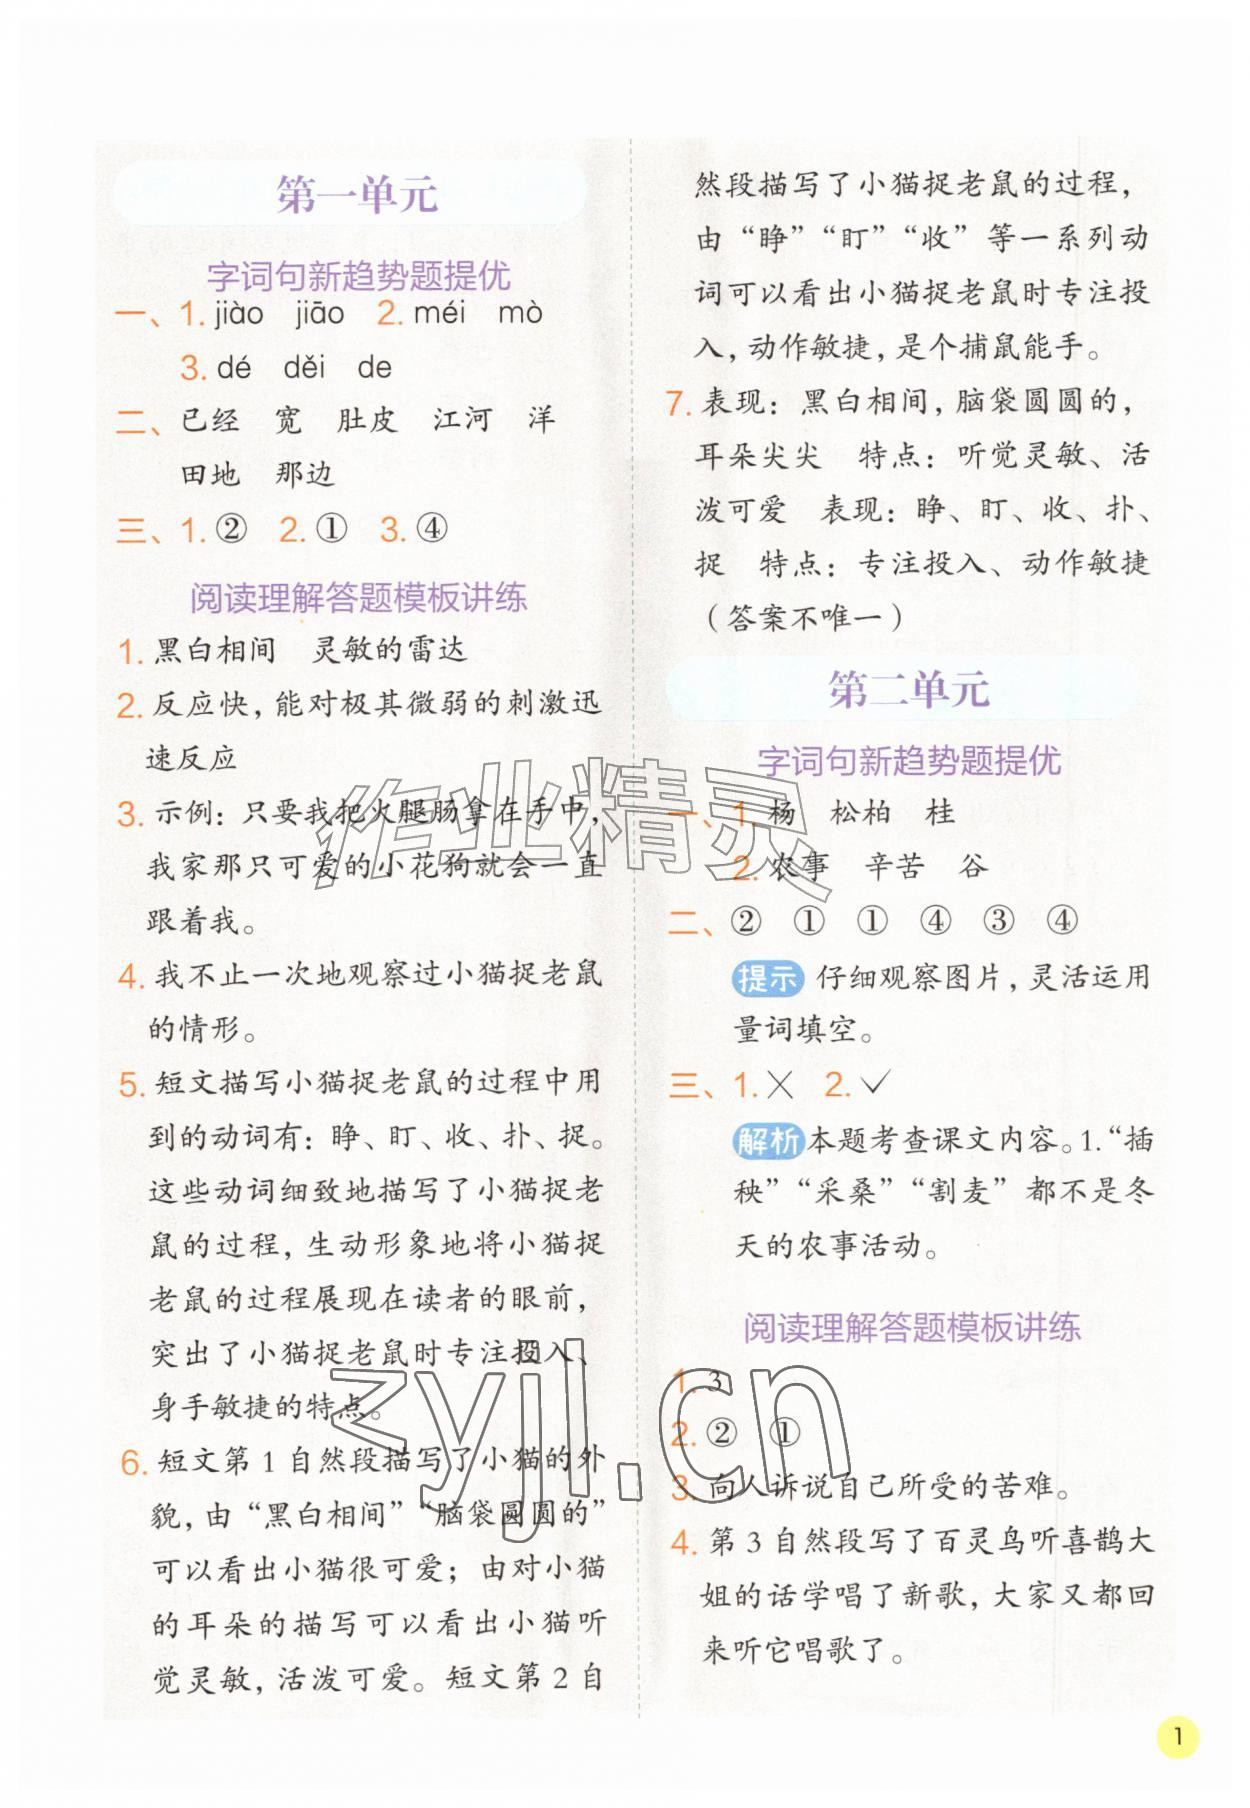 第一单元
字词句新趋势题提优
一、1. jiào jiāo 2. méi mò
3. dé děi de
二、已经 宽 肚皮 江河 洋
田地 那边
三、1. ② 2. ① 3. ④
阅读理解答题模板讲练
1. 黑白相间 灵敏的雷达
2. 反应快，能对极其微弱的刺激迅
速反应
3. 示例：只要我把火腿肠拿在手中，
我家那只可爱的小花狗就会一直
跟着我。
4. 我不止一次地观察过小猫捉老鼠
的情形。
5. 短文描写小猫捉老鼠的过程中用
到的动词有：睁、盯、收、扑、捉。
这些动词细致地描写了小猫捉老
鼠的过程，生动形象地将小猫捉
老鼠的过程展现在读者的眼前，
突出了小猫捉老鼠时专注投入、
身手敏捷的特点。
6. 短文第 1 自然段描写了小猫的外
貌，由“黑白相间”“脑袋圆圆的”
可以看出小猫很可爱；由对小猫
的耳朵的描写可以看出小猫听
觉灵敏，活泼可爱。短文第 2 自
然段描写了小猫捉老鼠的过程，
由“睁”“盯”“收”等一系列动
词可以看出小猫捉老鼠时专注投
入，动作敏捷，是个捕鼠能手。
7. 表现：黑白相间，脑袋圆圆的，
耳朵尖尖 特点：听觉灵敏、活
泼可爱 表现：睁、盯、收、扑、
捉 特点：专注投入、动作敏捷
（答案不唯一）
第二单元
字词句新趋势题提优
一、1. 杨 松柏 桂
2. 农事 辛苦 谷
二、② ① ① ④ ③ ④
提示 仔细观察图片，灵活运用
量词填空。
三、1. ✕ 2. ✓
解析 本题考查课文内容。1.“插
秧”“采桑”“割麦”都不是冬
天的农事活动。
阅读理解答题模板讲练
1. 3
2. ② ①
3. 向人诉说自己所受的苦难。
4. 第 3 自然段写了百灵鸟听喜鹊大
姐的话学唱了新歌，大家又都回
来听它唱歌了。
作业精灵
zyjl.cn
1